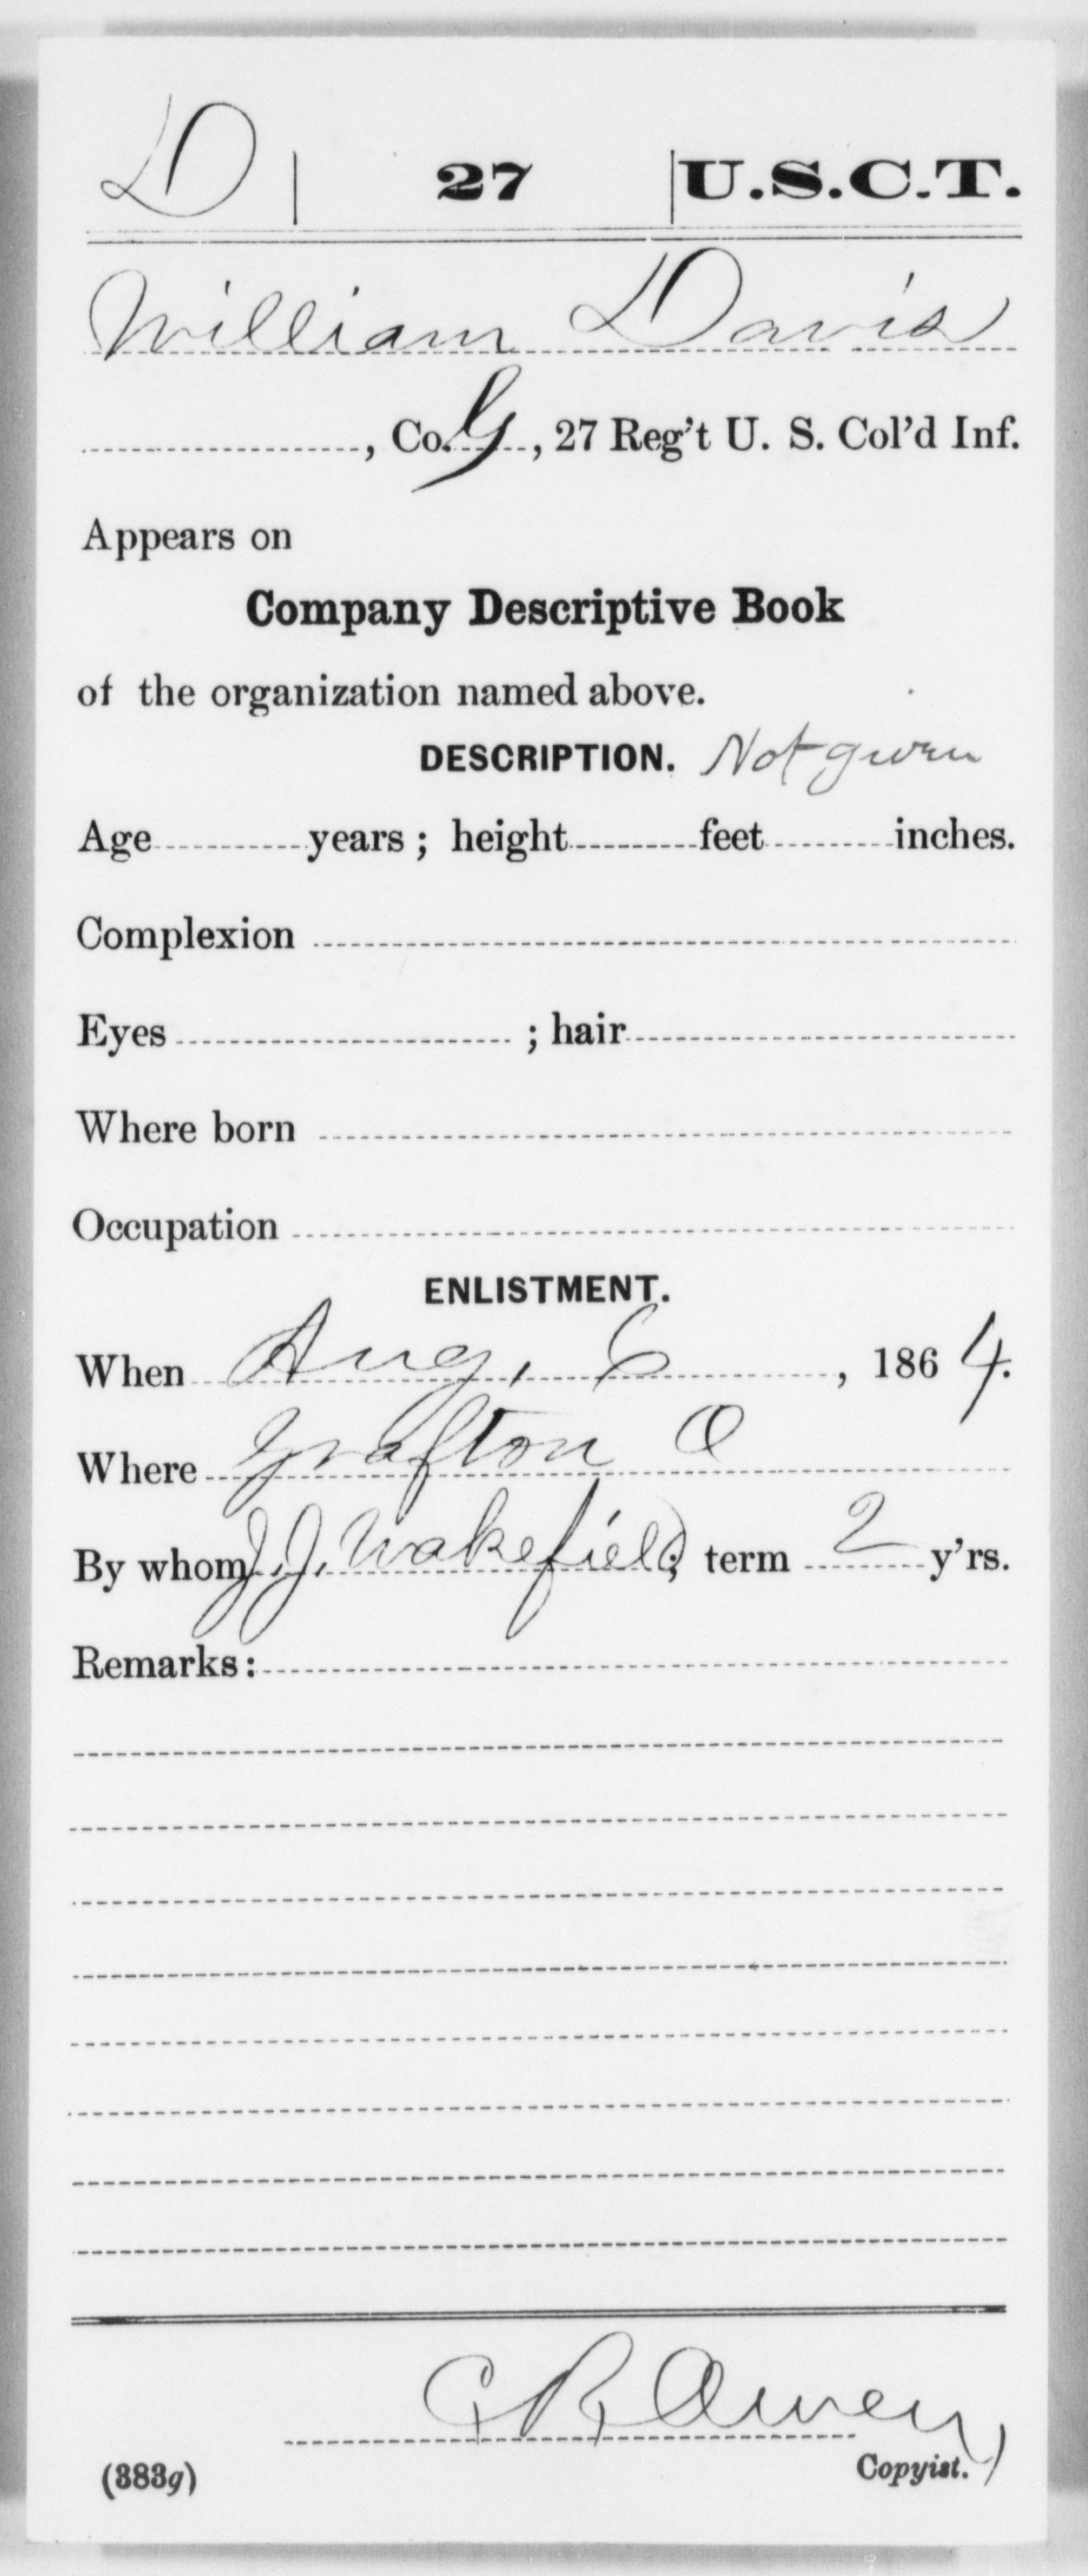 D | 27 | U.S.C.T.
William Davis
, Co. G, 27 Reg't U. S. Col'd Inf.
Appears on
Company Descriptive Book
of the organization named above.
DESCRIPTION. Not given
Age years; height feet inches.
Complexion
Eyes ; hair
Where born
Occupation
ENLISTMENT.
When Aug. 6, 1864.
Where Grafton O
By whom J. J. Wakefield; term 2 y'rs.
Remarks:
C R Owen
(383g) Copyist.